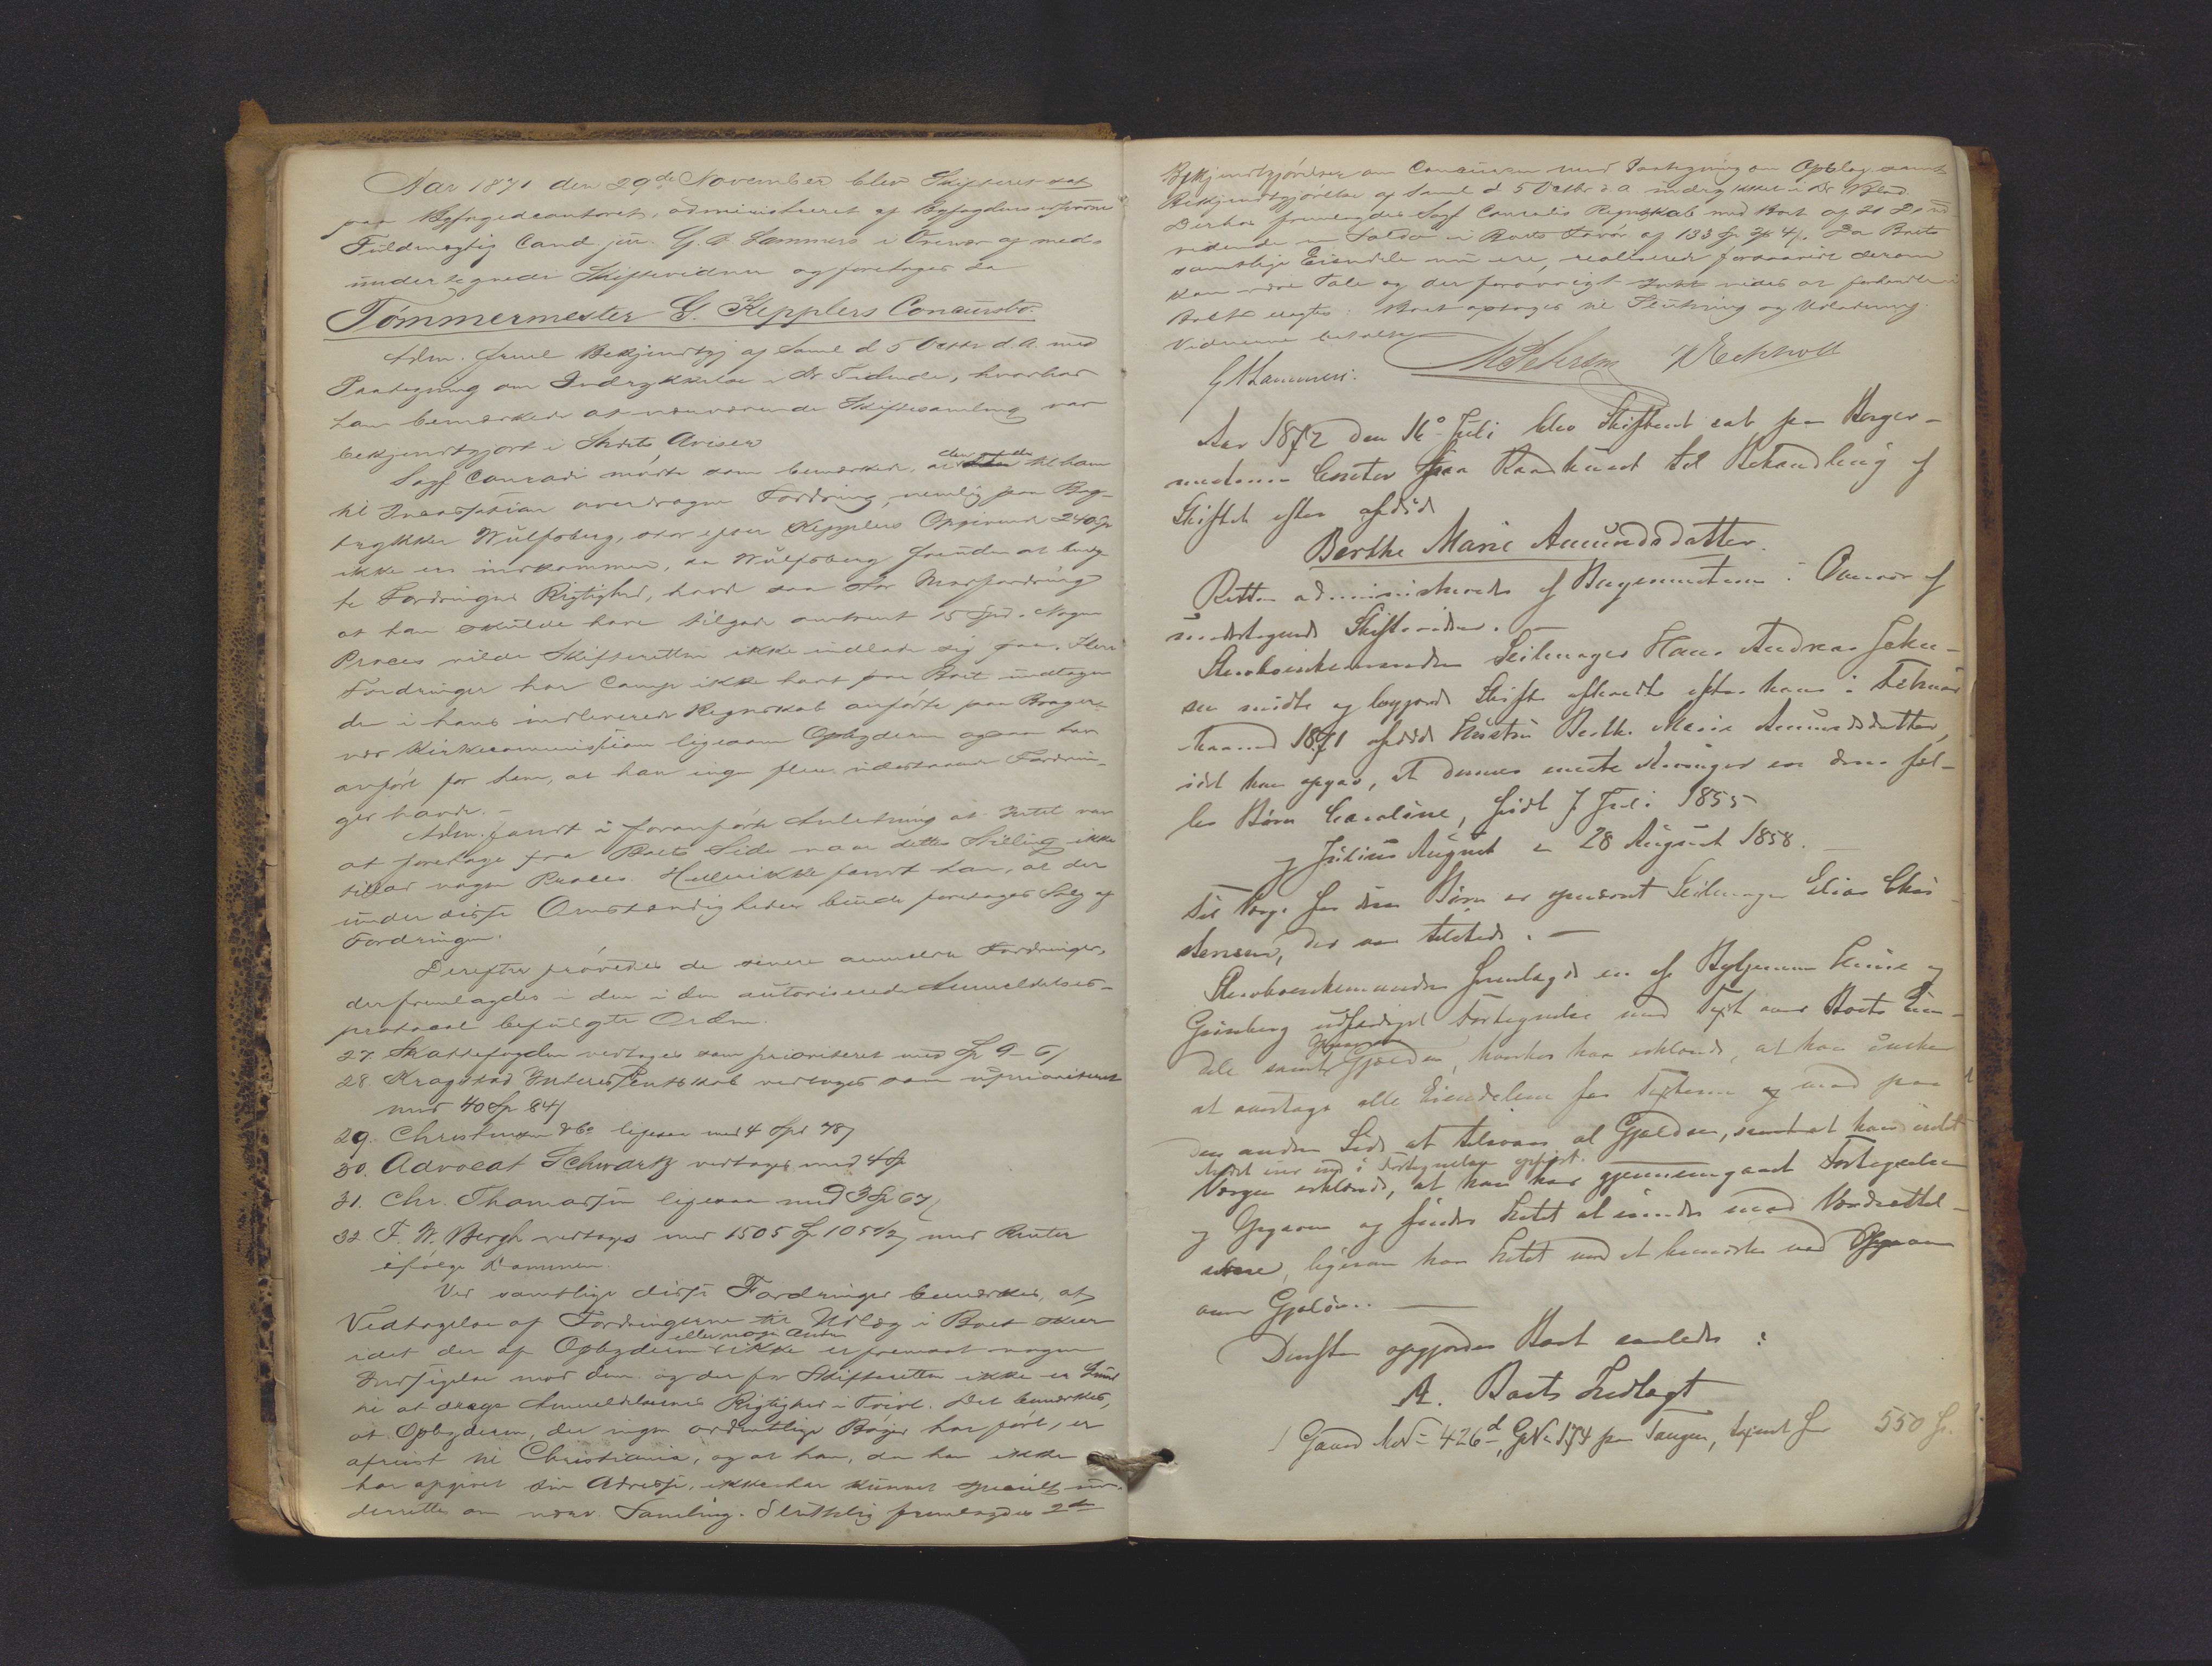 Aar 1871 den 29de November blev Skifteret sat
paa Byfogedcontoret, administreret af Byfogdens edsvorne
Fuldmægtig Cand. jur. G. A. Lammers i Overvær af med-
undertegnede Skiftevidner og foretoges da
Tømmermester G. Kepplers Concursbo.
Adm. freml. Bekjendtgj. af Saml. d 5 Octbr d. A. med
Paategning om Indrykkelse i Dr Tidende, hvorhos
han bemærkede at nærværende Skiftesamling var
bekjendtgjort i Stedets Aviser
Sagf Conradi mødte som bemærkede, at den til ham
til Incassation overdragne Fordring, nemlig paa Bog-
trykker Wulfsberg, stor efter Kepplers Opgivende 240 Sp
ikke er indkommen, da Wulfsberg foruden at benæg-
te Fordringens Rigtighed, havde saa stor Modfordring
at han skulde have tilgode omtrent 15 Spd. Nogen
Proces vilde Skifteretten ikke indlade sig paa. Flere
Fordringer har Comp. ikke havt paa Boet undtagen
de i hans indleverede Regnskab anførte paa Brager-
nes Kirkecommission ligesom Opbyderen ogsaa har
anført for ham, at han ingen flere udestaaende Fordrin-
ger havde. –
Adm. fandt i foranførte Anledning at Intet var
at foretage fra Boets Side naar dettes Stilling ikke
tillod nogen Proces. Hellerikke fandt han, at der
under disse Omstændigheder burde foretages Salg af
Fordringen.
Derefter prøvedes de senere anmeldte Fordringer,
der fremlagdes i den i den autoriserede Anmeldelses-
protocol befulgte Orden.
27 Skattefogden vedtoges som prioriteret med Sp 9 – 6 /
28 Kragstad Interessentskab vedtoges som uprioriteret
med 40 Sp 84 /
29. Christensen & Co ligesaa med 4 Spd 78 /
30. Advocat Schwartz vedtoges med 4 Sp
31. Chr. Thomassen ligesaa med 3 Sp 67 /
32. F. W. Bergh vedtoges med 1505 Sp 105 1/2 / med Renter
ifølge Dommen.
Ved samtlige disse Fordringer bemærkes, at
Vedtagelse af Fordringerne til Udlæg i Boet skeer
eller nogen Anden
idet der af Opbyderen ikke er fremsat nogen
Indsigelse mod dem og der for Skifteretten ikke er Grund
til at drage Anmeldelsernes Rigtighed i Tvivl. Det bemærkes,
at Opbyderen, der ingen ordentlige Bøger har ført, er
afreist til Christiania, og at han, da han ikke
har opgivet sin Adresse, ikke har kunnet specielt un-
derrettes om nærv. Samling. Sluttelig fremlagdes 2de
Bekjendtgjørelser om Concursen med Paategning om Opslag samt
Bekjendtgjørelse af Saml. d 5 Octbr d. A. indrykket i Dr Blad.
Derhos fremlagdes Sagf Conradis Regnskab med Boet
udvisende en Saldo i Boets Favør af 133 Sp. Da Boets
samtlige Eiendele nu ere realiserede forsaavidt derom
kan være Tale og der forøvrigt Intet vides at forhandle i
Boet: Boet optoges til Slutning og Udlodning.
Vidnerne betaltes
G A Lammers.
Aar 1872 den 16de Juli blev Skifteret sat paa Borger-
mester Contor paa Raadhuset til Behandling af
Skiftet efter afdøde
Berthe Marie Amundsdatter.
Retten administreredes af Borgermesteren i Overvær af
undertegnede Skiftevidner. –
Sterboenkemanden Seilmager Hans Andreas Jakob-
sen mødte og begjærede Skifte afholdt efter hans i Februar
Maaned 1871 afdøde Hustru Berthe Marie Amundsdatter,
idet han opgav, at dennes eneste Arvinger ere deres fæl-
les Børn Caroline, født 7 Juli 1855
og Julius August – 28 August 1858. –
Til Værge for disse Børn er opnævnt Seilmager Elias Chri-
stensen, der var tilstede. –
Sterboenkemanden fremlagde en af Bytjenerne Kruse og
Grünberg udfærdiget Fortegnelse med Taxt over Boets Eien-
dele samt Opgave over Gjælden, hvorhos han erklærede, at han ønsker
at overtage alle Eiendelene for Taxterne og mod paa
den anden Side at tilsvare al Gjælden, samt at han intet
Andet eier end i Fortegnelsen opført.
Værgen erklærede, at han har gjennemgaaet Fortegnelsen
og Opgaven og finder Intet at erindre mod Værdsættel-
serne, ligesom han Intet med at bemærke ved Opgaven
over Gjælden. –
Derefter opgjordes Boet saaledes:
A. Boets Indtægt
1 Gaard MN= 426d, GN= 174 paa Tangen, taxeret for 550 Sp.